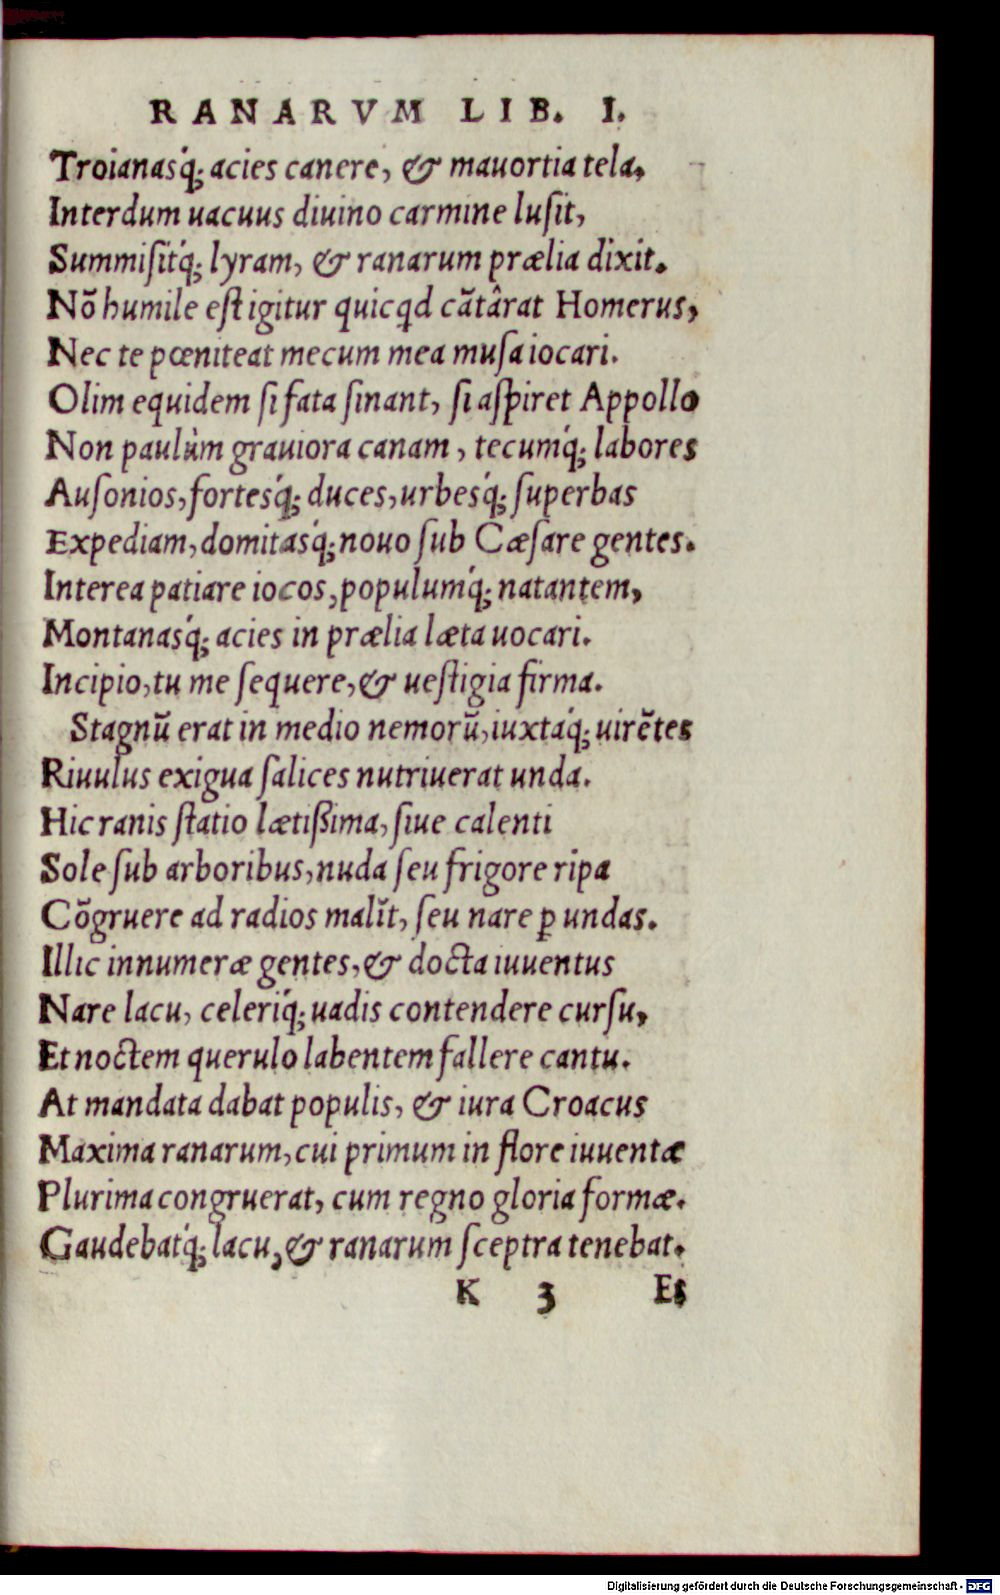 RANARVM LIB. I.
Troianasq́; acies canere, & mauortia tela,
Interdum uacuus diuino carmine luſit,
Summiſitq́; lyram, & ranarum prælia dixit.
Nõ humile eſt igitur quicqd cãtârat Homerus,
Nec te pœniteat mecum mea muſa iocari.
Olim equidem ſi fata ſinant, ſi aſpiret Appollo
Non paulùm grauiora canam, tecumq́; labores
Auſonios, fortesq́; duces, urbesq́; ſuperbas
Expediam, domitasq́; nouo ſub Cæſare gentes.
Interea patiare iocos, populumq́; natantem,
Montanasq́; acies in prælia læta uocari.
Incipio, tu me ſequere, & ueſtigia firma.
Stagnũ erat in medio nemorũ, iuxtaq́; uirẽtes
Riuulus exigua ſalices nutriuerat unda.
Hic ranis ſtatio lætißima, ſiue calenti
Sole ſub arboribus, nuda ſeu frigore ripa
Cõgruere ad radios malĩt, ſeu nare ꝑ undas.
Illic innumeræ gentes, & docta iuuentus
Nare lacu, celeriq́; uadis contendere curſu,
Et noctem querulo labentem fallere cantu.
At mandata dabat populis, & iura Croacus
Maxima ranarum, cui primum in flore iuuentæ
Plurima congruerat, cum regno gloria formæ.
Gaudebatq́; lacu, & ranarum ſceptra tenebat.
K 3 Es
Digitalisierung gefördert durch die Deutsche Forschungsgemeinschaft - DFG